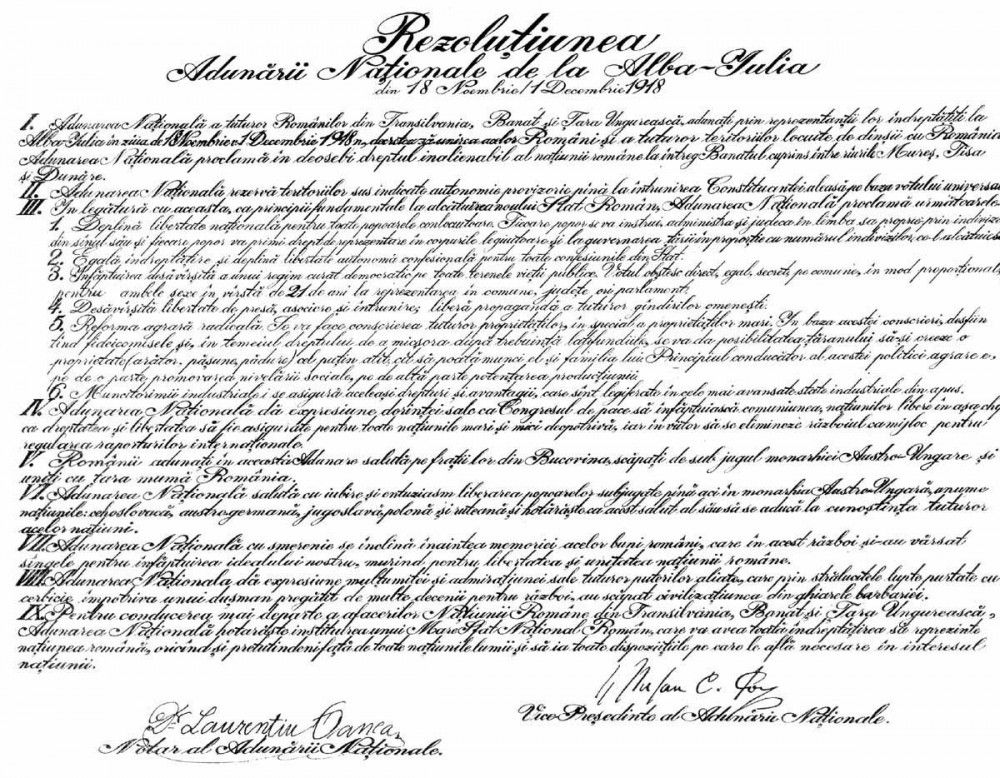 Rezoluțiunea
Adunării Naționale de la Alba-Iulia
din 18 Noembrie/1 Decembrie 1918
I. Adunarea Națională a tuturor Românilor din Transilvania, Banat și Țara Ungurească, adunați prin reprezentanții lor îndreptățiți la
Alba-Iulia în ziua de 18 Noembrie 1 Decembrie 1918, decretează unirea acelor Români și a tuturor teritoriilor locuite de dînșii cu România.
Adunarea Națională proclamă în deosebi dreptul inalienabil al națiunii române la întreg Banatul cuprins între rîurile Mureș, Tisa
și Dunăre.
II. Adunarea Națională rezervă teritoriilor sus indicate autonomie provizorie pînă la întrunirea Constituantei aleasă pe baza votului universal.
III. In legătură cu aceasta, ca principii fundamentale la alcătuirea noului Stat Român, Adunarea Națională proclamă următoarele:
1. Deplină libertate națională pentru toate popoarele conlocuitoare. Fiecare popor se va instrui, administra și judeca în limba sa proprie prin indivizi
din sînul său și fiecare popor va primi drept de reprezentare în corpurile legiuitoare și la guvernarea țării în proporție cu numărul indivizilor ce-l alcătuiesc
2. Egală îndreptățire și deplină libertate autonomă confesională pentru toate confesiunile din Stat.
3. Infăptuirea desăvîrșită a unui regim curat democratic pe toate terenele vieții publice. Votul obștesc, direct, egal, secret, pe comune, în mod proporțional,
pentru ambele sexe în vîrstă de 21 de ani la reprezentarea în comune, județe ori parlament.
4. Desăvîrșită libertate de presă, asociere și întrunire; liberă propagandă a tuturor gîndirilor omenești.
5. Reforma agrară radicală. Se va face conscrierea tuturor proprietăților, în special a proprietăților mari. In baza acestei conscrieri, desfiin
țînd fideicomisele și, în temeiul dreptului de a micșora după trebuință latifundiile, se va da posibilitatea țăranului să-și creeze o
proprietate (arător, pășune, pădure) cel puțin atît cît să poată munci el și familia lui. Principiul conducător al acestei politici agrare e,
pe de o parte promovarea nivelării sociale, pe de altă parte potențarea producțiunii
6. Muncitorimii industriale i se asigură aceleași drepturi și avantagii, care sînt legiferate în cele mai avansate state industriale din apus.
IV. Adunarea Națională dă expresiune dorinței sale ca Congresul de pace să înfăptuiască comuniunea, națiunilor libere în așa chip
ca dreptatea și libertatea să fie asigurate pentru toate națiunile mari și mici deopotrivă, iar în viitor să se elimineze războiul ca mijloc pentru
regularea raporturilor internaționale.
V. Românii adunați în această Adunare salută pe frații lor din Bucovina, scăpați de sub jugul monarhiei Austro-Ungare și
uniți cu țara mumă România.
VI. Adunarea Națională salută cu iubire și entuziasm liberarea popoarelor subjugate pînă aci în monarhia Austro-Ungară, anume
națiunile: cehoslovacă, austrogermană, jugoslavă, polonă și ruteană și hotărăște ca acest salut al său să se aducă la cunoștința tuturor
acelor națiuni.
VII. Adunarea Națională cu smerenie se înclină înaintea memoriei acelor buni români, care în acest război și-au vărsat
sîngele pentru înfăptuirea idealului nostru, murind pentru libertatea și unitatea națiunii române.
VIII. Adunarea Națională dă expresiune mulțumitei și admirațiunei sale tuturor puterilor aliate, care prin strălucitele lupte purtate cu
cerbicie împotriva unui dușman pregătit de multe decenii pentru război, au scăpat civilizațiunea din ghiarele barbariei.
IX. Pentru conducerea mai departe a afacerilor Națiunii Române din Transilvania, Banat și Țara Ungurească,
Adunarea Națională hotărăște instituirea unui Mare Sfat Național Român, care va avea toată îndreptățirea să reprezinte
națiunea română, oricînd și pretutindeni față de toate națiunile lumii și să ia toate dispozițiile pe care le află necesare în interesul
națiunii.
Ștefan C. Pop
Vice Președinte al Adunării Naționale.
Dr. Laurențiu Oanea
Notar al Adunării Naționale.